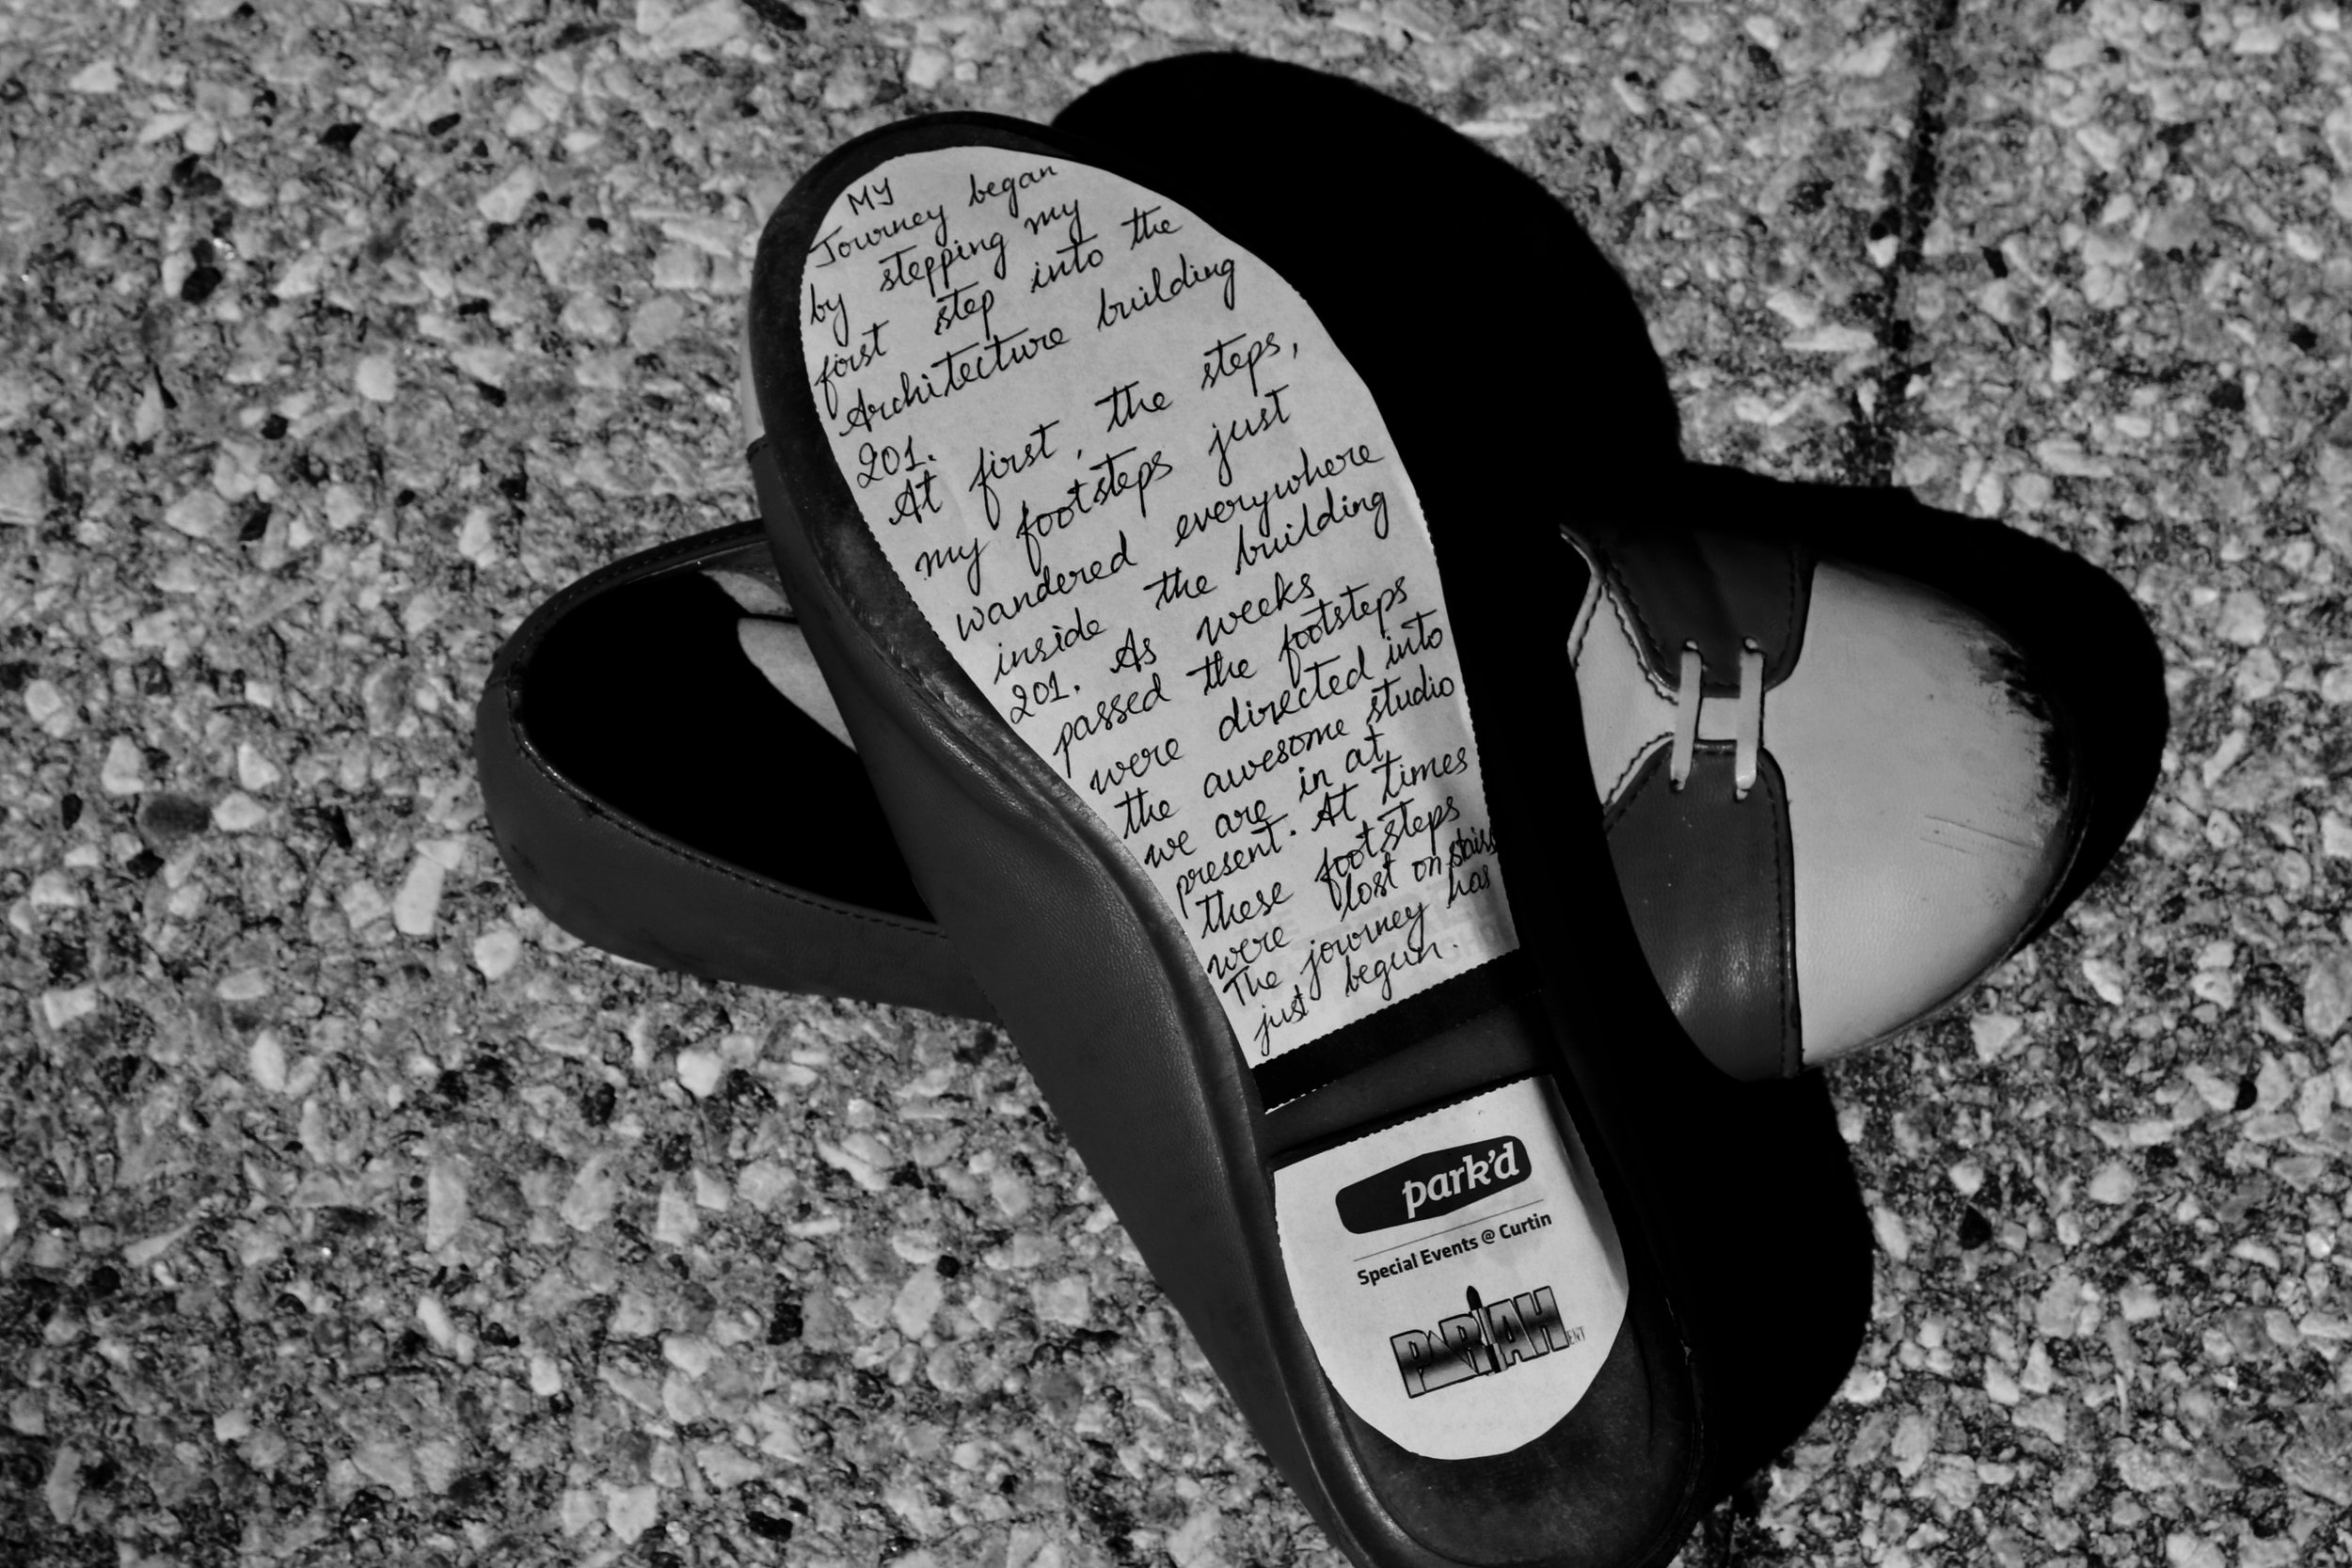 MY
Journey began
by stepping my
first step into the
Architecture building
201.
At first, the steps,
my footsteps just
wandered everywhere
inside the building
201. As weeks
passed the footsteps
were directed into
the awesome studio
we are in at
present. At times
these footsteps
were lost on stairs
The journey has
just begun.
park'd
Special Events @ Curtin
PARIAH
ENT